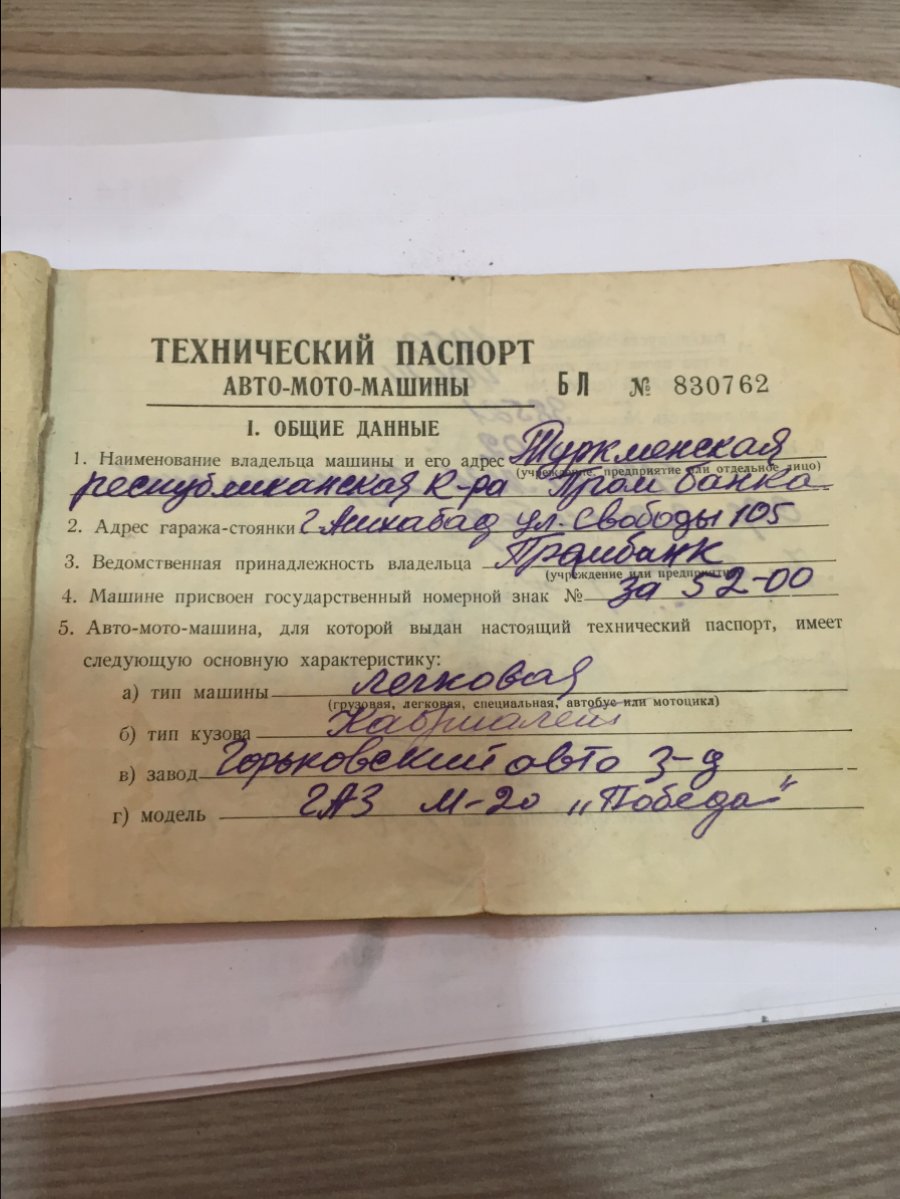 ТЕХНИЧЕСКИЙ ПАСПОРТ
АВТО-МОТО-МАШИНЫ БЛ № 830762
I. ОБЩИЕ ДАННЫЕ
1. Наименование владельца машины и его адрес Туркменская
(учреждение, предприятие или отдельное лицо)
республиканская к-ра Промбанка
2. Адрес гаража-стоянки г. Ашхабад ул. Свободы 105
3. Ведомственная принадлежность владельца Промбанк
(учреждение или предприятие)
4. Машине присвоен государственный номерной знак № за 52-00
5. Авто-мото-машина, для которой выдан настоящий технический паспорт, имеет
следующую основную характеристику:
а) тип машины легковая
(грузовая, легковая, специальная, автобус или мотоцикл)
б) тип кузова Кабриалет
в) завод Горьковский авто з-д
г) модель ГАЗ М-20 „Победа"